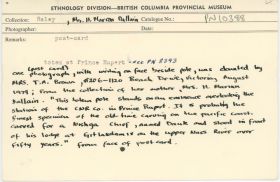 ETHNOLOGY DIVISION—BRITISH COLUMBIA PROVINCIAL MUSEUM
Collection: Haley, Mrs. H. Marion Dallain Catalogue No.: PN10388
Photographer: Date:
Remarks: post-card
totem at Prince Rupert see PN 8393
(post card)
one photograph, with writing on face beside pole, was donated by
Mrs. T.A. Brown, #206-1120 Beach Drive, Victoria, August
1978, from the collection of her mother Mrs. H. Marion
Dallain. "This totem pole stands on an eminence overlooking the
station of the CNR Co. in Prince Rupert. It is probably the
finest specimen of the old time carving on the pacific coast.
carved for a Nishga Chief, named Doouk and stood in front
of his lodge at Gitlakdamix on the upper Nass River over
fifty years." from face of post card.